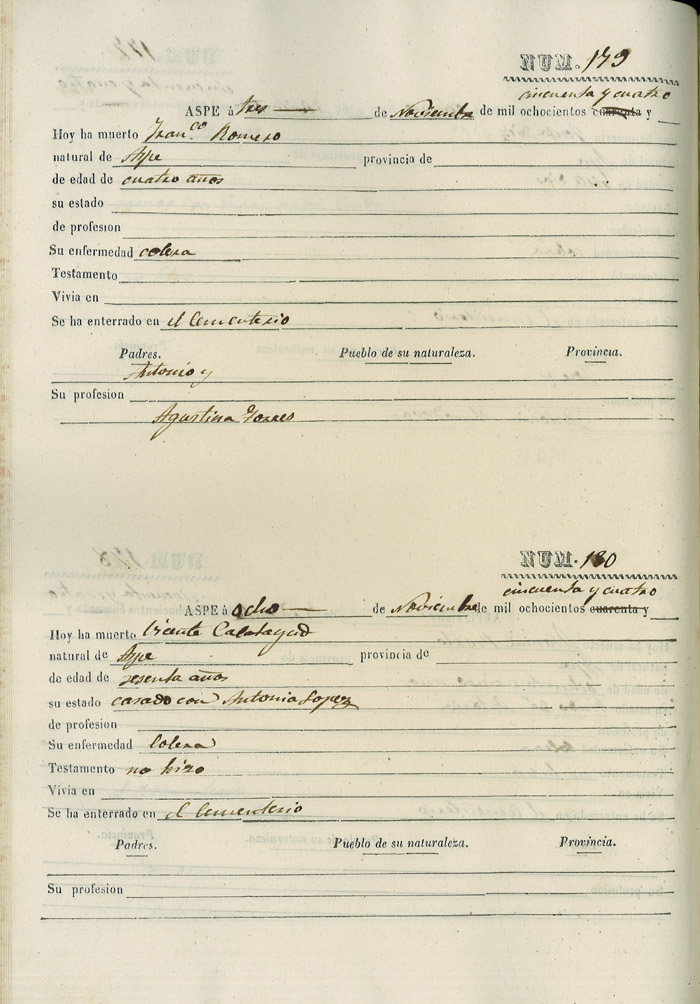 NUM. 179
cincuenta y cuatro
ASPE á tres de Noviembre de mil ochocientos cuarenta y
Hoy ha muerto Fran.co Romero
natural de Aspe provincia de
de edad de cuatro años
su estado
de profesion
Su enfermedad colera
Testamento
Vivia en
Se ha enterrado en el Cementerio
Padres. Pueblo de su naturaleza. Provincia.
Antonio y
Su profesion
Agustina Torres
NUM. 180
cincuenta y cuatro
ASPE á ocho de Noviembre de mil ochocientos cuarenta y
Hoy ha muerto Vicente Calatayud
natural de Aspe provincia de
de edad de sesenta años
su estado casado con Antonia Lopez
de profesion
Su enfermedad Colera
Testamento no hizo
Vivia en
Se ha enterrado en el Cementerio
Padres. Pueblo de su naturaleza. Provincia.
Su profesion